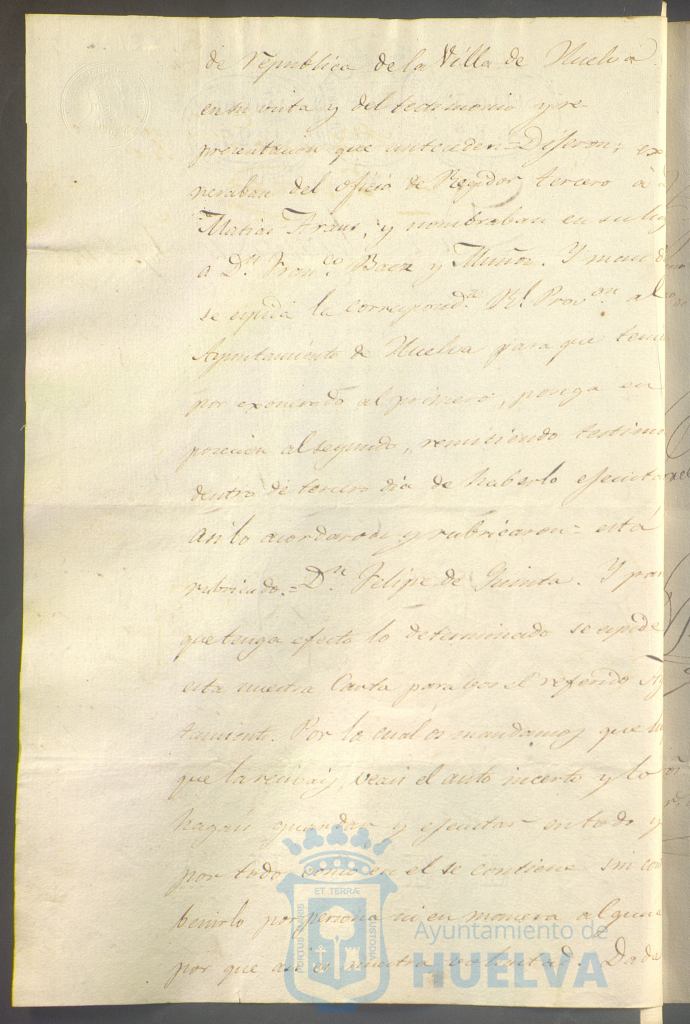 de republica de la Villa de Huelva
en su vista y del testimonio y re-
presentacion que anteceden = Dijeron; exo
neraban del oficio de Regidor tercero à
Matias Fraus, y nombraban en su lug
a Dn. Franco. Baez y Muñoz. Y man
se espida la correspondte. Rl. Provon. al
Ayuntamiento de Huelva para que teni
por exonerado al primero, ponga en
posecion al segundo, remitiendo testim
dentro de tercero dia de haberlo ejecuta
Asi lo acordaron y rubricaron = está
rubricado. = Dn. Felipe de Quinta. Y para
que tenga efecto lo determinado se espide
esta nuestra Carta para vos el referido Ay
tamiento. Por la cual os mandamos que l
que la recivais, veais el auto incerto y lo
hagais guardar y ejecutar en todo y
por todo como en el se contiene sin con
benirlo por persona ni en manera alguna
por que asi es nuestra voluntad. Dada
ET TERRÆ
PORTUS MARIS
CUSTODIA
Ayuntamiento de
HUELVA